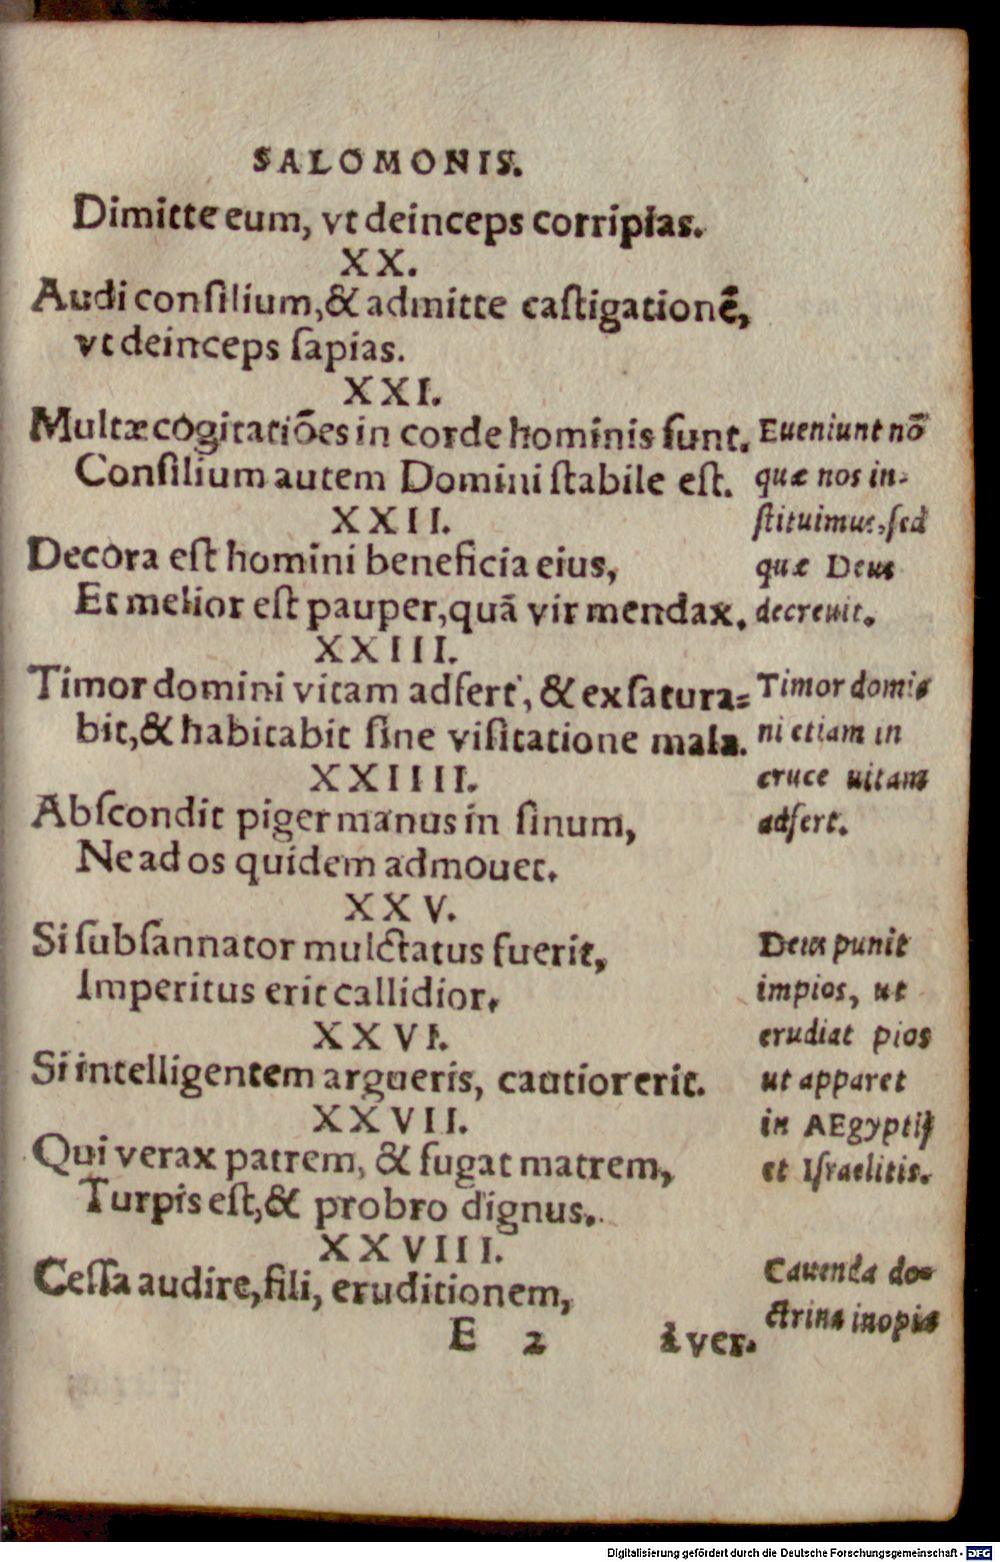 SALOMONIS.
Dimitte eum, vt deinceps corripias.
XX.
Audi consilium, & admitte castigationē,
vt deinceps sapias.
XXI.
Multæ cogitatiōes in corde hominis sunt.
Consilium autem Domini stabile est.
XXII.
Decora est homini beneficia eius,
Et melior est pauper, quā vir mendax.
XXIII.
Timor domini vitam adfert, & exsatura=
bit, & habitabit sine visitatione mala.
XXIIII.
Abscondit piger manus in sinum,
Ne ad os quidem admouet.
XXV.
Si subsannator mulctatus fuerit,
Imperitus erit callidior.
XXVI.
Si intelligentem argueris, cautior erit.
XXVII.
Qui verax patrem, & fugat matrem,
Turpis est, & probro dignus.
XXVIII.
Cessa audire, fili, eruditionem,
E 2
à ver.
Eueniunt nō
quæ nos in-
stituimus, sed
quæ Deus
decreuit.
Timor domi-
ni etiam in
cruce uitam
adfert.
Deus punit
impios, ut
erudiat pios
ut apparet
in AEgyptijs
et Israelitis.
Cauenda do-
ctrina inopia
Digitalisierung gefördert durch die Deutsche Forschungsgemeinschaft - DFG